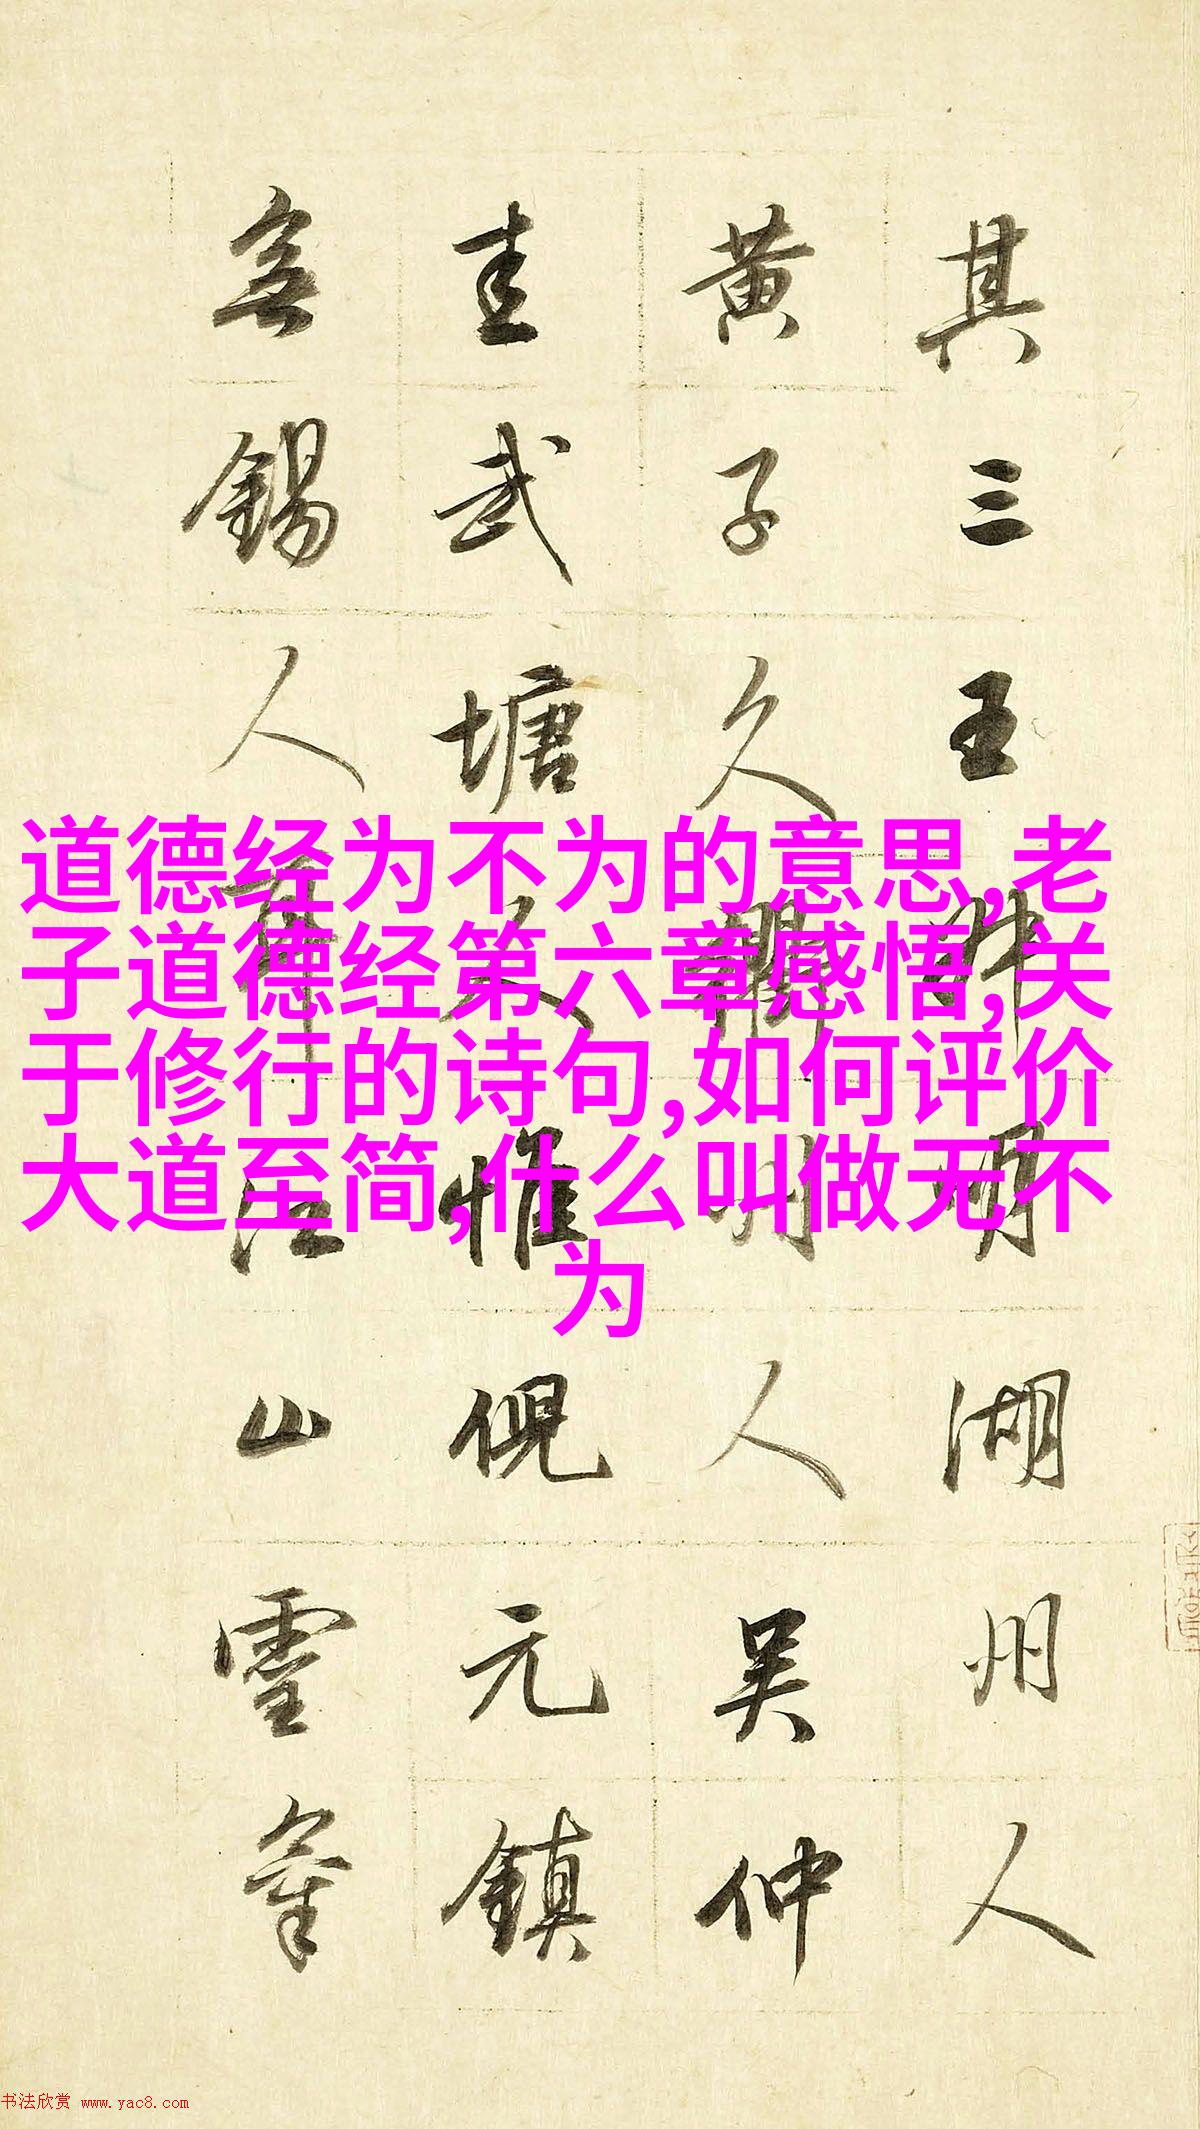 道德经为不为的意思,老
子道德经第六章感悟,关
于修行的诗句,如何评价
大道至简,什么叫做无不
为
其三王叔明湖州人
黄子久衢州人吴仲
圭武塘人惟倪元鎮
無錫人耳江山靈
书法欣赏 www.yac8.com